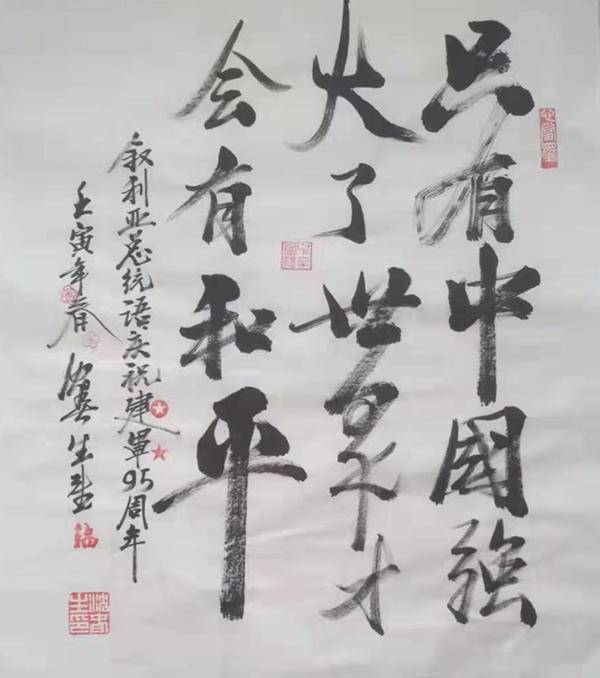 只有中國強
大了世界才
会有和平
叙利亚总统语庆祝建军95周年
壬寅年春
生